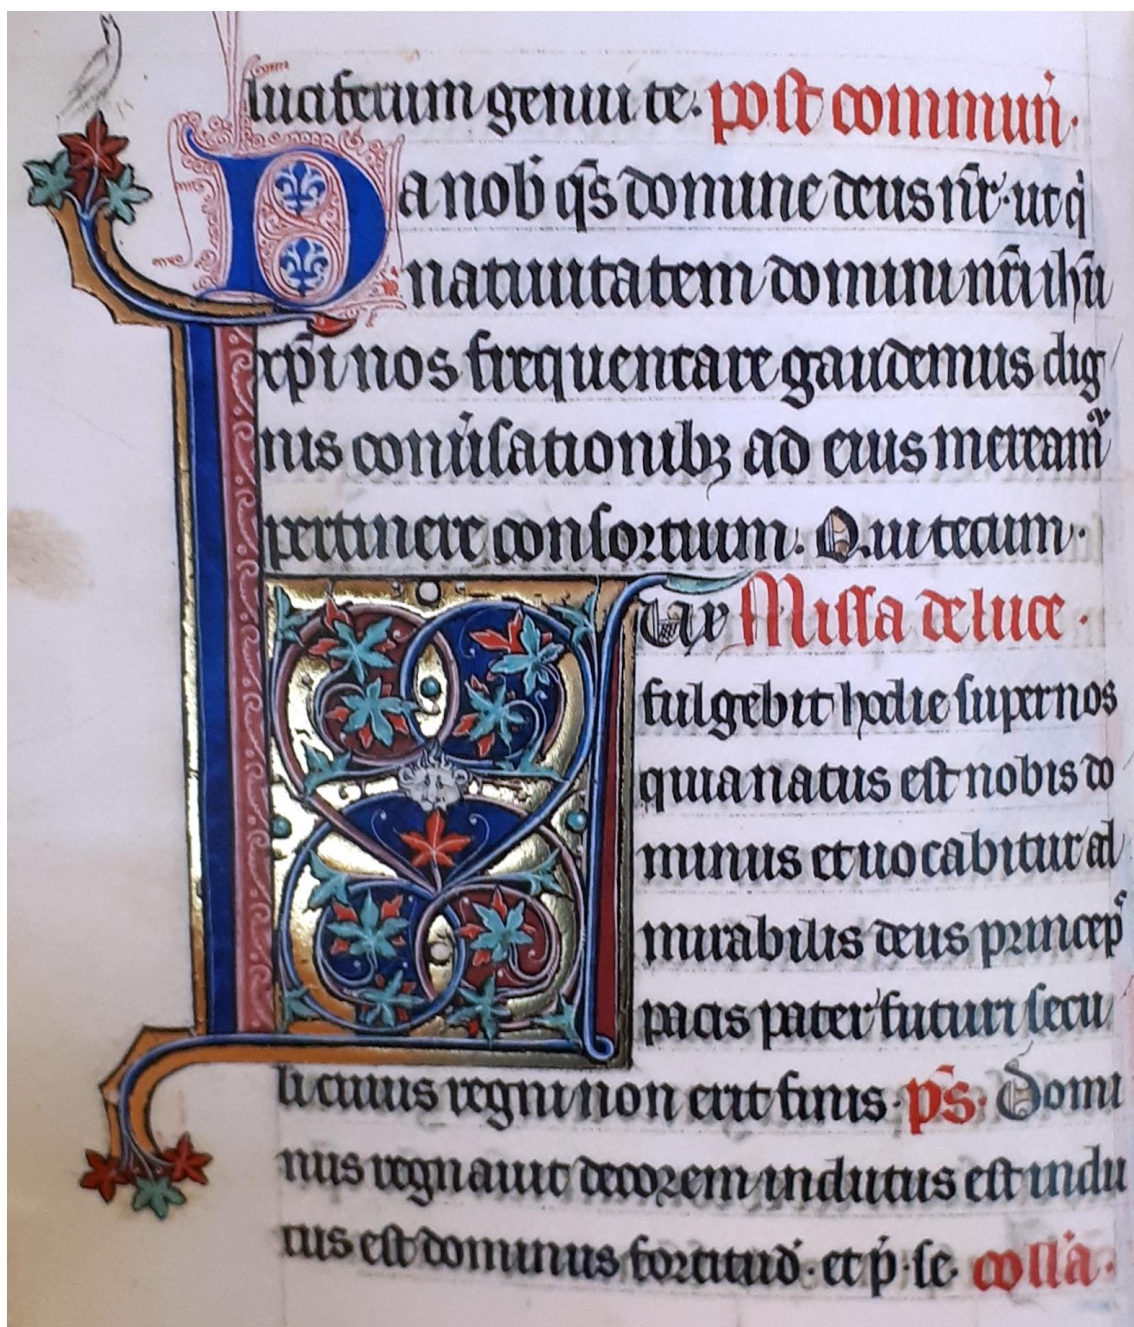 luciferum genui te. post commun̄.
Da nob̄ q̄s domine deus nr̄. ut q̇
natiuitatem domini nr̄i ih̄u
xp̄i nos frequentare gaudemus dig
nis conu̇ſationibꝫ ad eius meream̄
pertinere conſortium. Qui tecum.
Lux Miſſa de luce.
fulgebit hodie ſuper nos
quia natus eſt nobis do
minus et uocabitur ad
mirabilis deus princep̄
pacis pater futuri ſecu
li cuius regni non erit finis. p̄s. Domi
nus regnauit decorem indutus eſt indu
tus eſt dominus fortitud̄. et p̄. ſe. coll̄a.